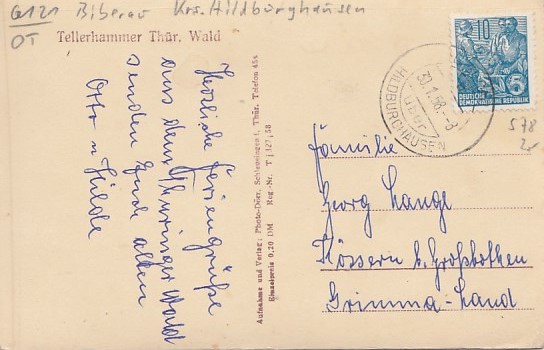 G121 Biberau Krs. Hildburghausen
OT
Tellerhammer Thür. Wald
Herzliche Feriengrüße
aus dem Thüringer Wald
senden Euch allen
Otto u Hilde
Aufnahme und Verlag: Photo-Dörr, Schleusingen i. Thür. Telefon 454
Einzelpreis 0,20 DM Reg.-Nr. T
10
DEUTSCHE
DEMOKRATISCHE REPUBLIK
HILDBURGHAUSEN
578
Familie
Georg Lange
Kössern b. Großbothen
Grimma-Land